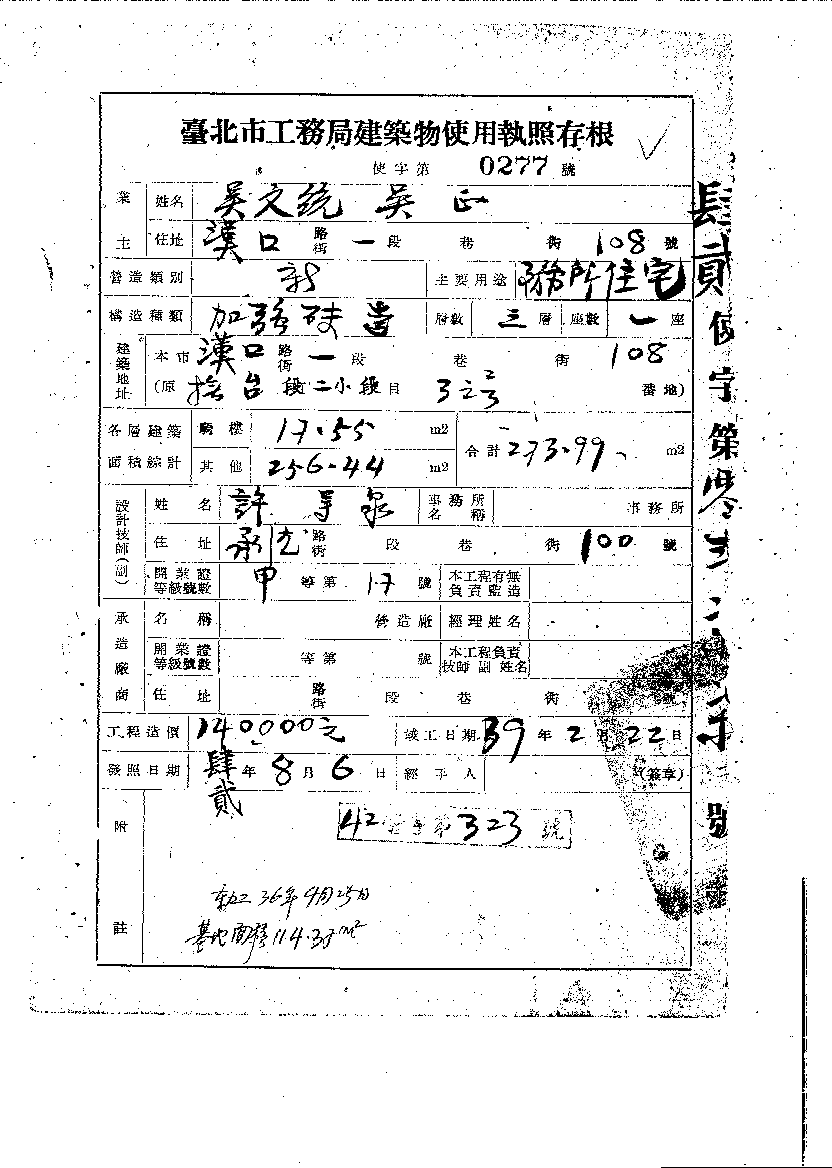 臺北市工務局建築物使用執照存根
使字第 0277 號
業主 姓名 吳文統 吳正
住址 漢口 路街 一 段 巷 衖 108 號
營造類別 新 主要用途 務所住宅
構造種類 加強磚造 層數 三 層 座數 一 座
建築地址 本市 漢口 路街 一 段 巷 衖 108
(原 撫台 段二小段目 3之 番地)
各層建築面積綜計 騎樓 17.55 m2 合計 273.99 m2
其他 256.44 m2
設計技師(副) 姓名 許 泉 事務所名稱 事務所
住址 路街 段 巷 衖 100 號
開業證等級號數 甲 等第 17 號 本工程有無負責監造
承造廠商 名稱 營造廠 經理姓名
開業證等級號數 等第 號 本工程負責技師副姓名
住址 路街 段 巷 衖 號
工程造價 140000元 竣工日期 39 年 2 月 22 日
發照日期 肆貳 年 8 月 6 日 經手人 (簽章)
附註
42 字第 323 號
動工 36年9月25日
基地面積 114.38 m2
肆貳使字第零 號